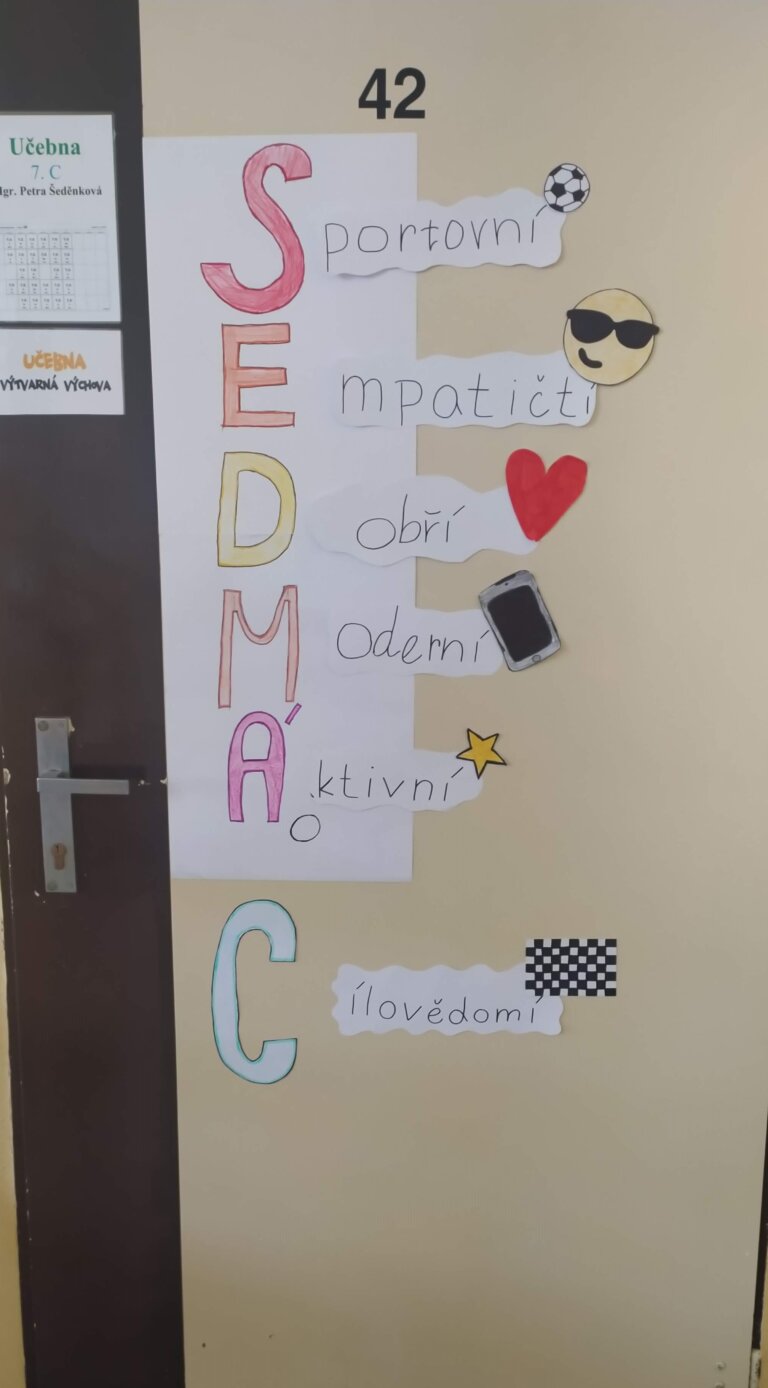 42
Učebna
7. C
Mgr. Petra Šeděnková
UČEBNA
VÝTVARNÁ VÝCHOVA
Sportovní
Empatičtí
Dobří
Moderní
Áktivní
O
Cílovědomí